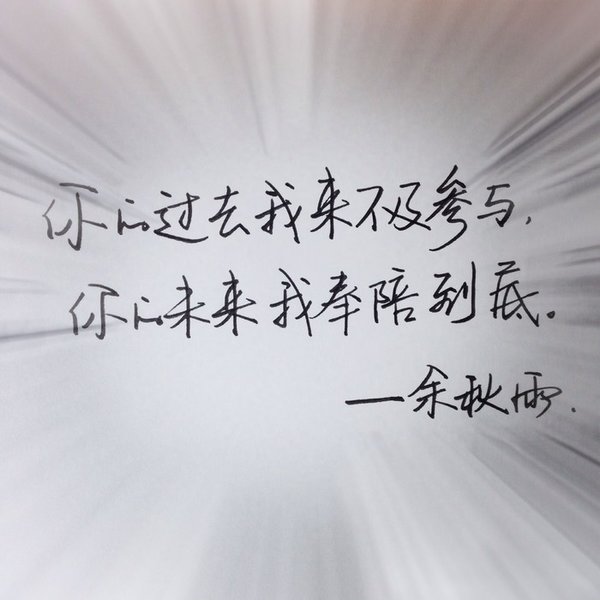 你的过去我来不及参与,
你的未来我奉陪到底。
—余秋雨.